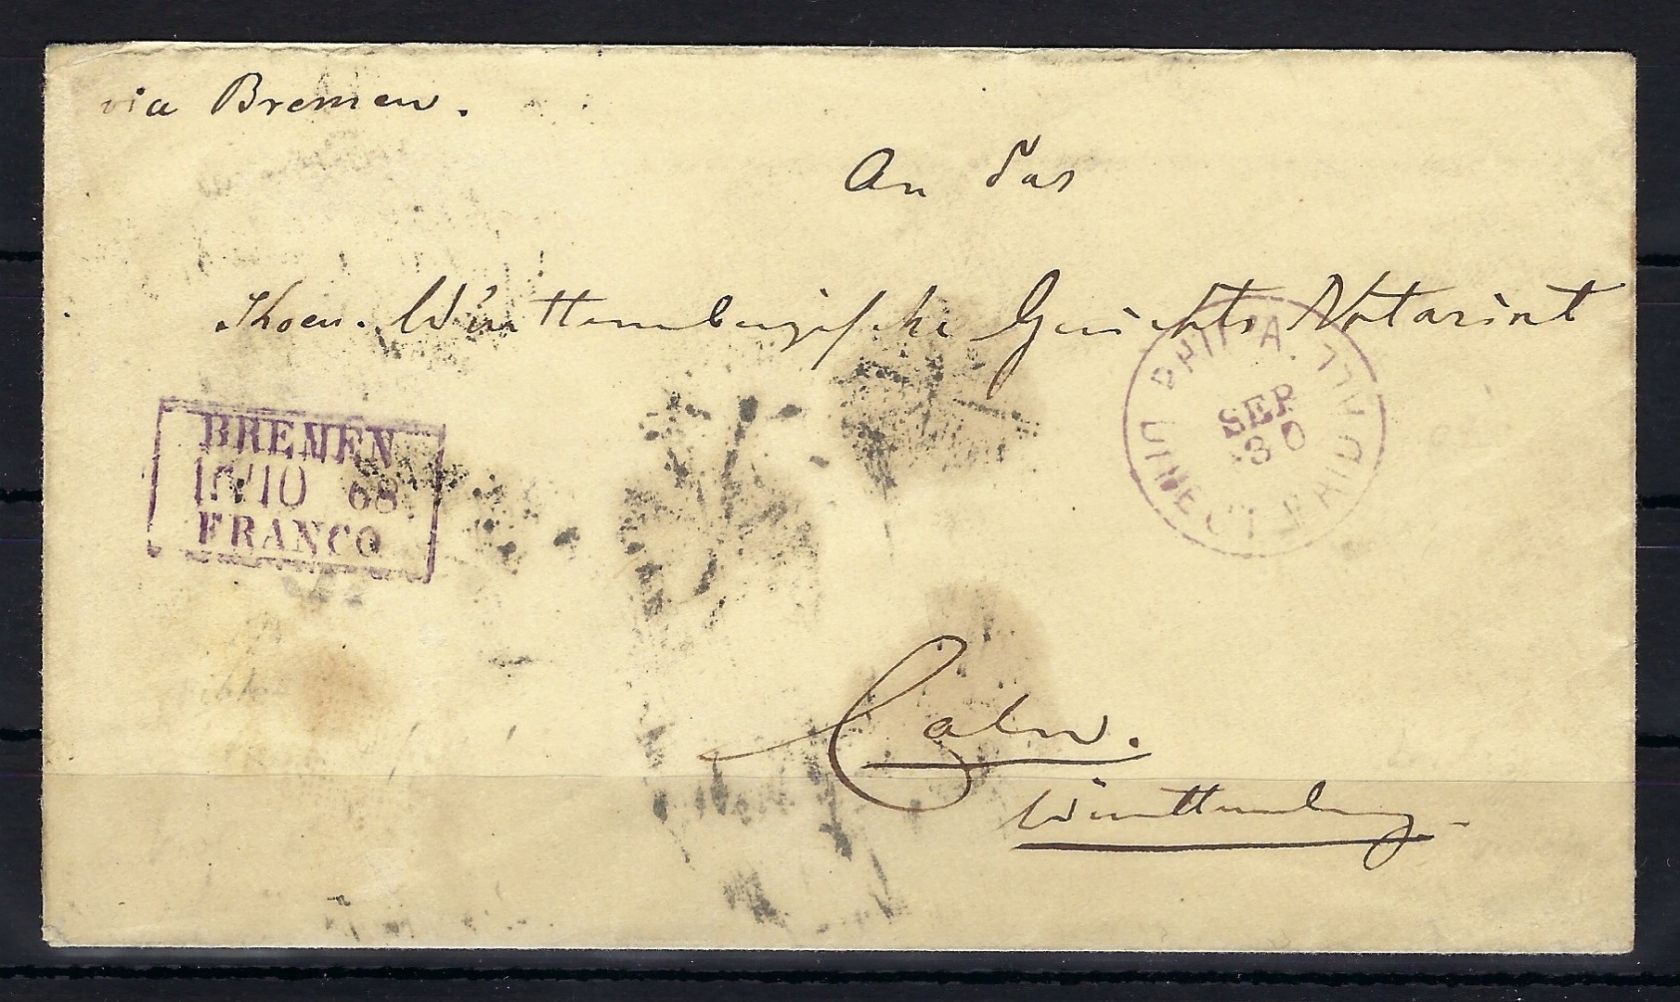 via Bremen.
An das
Koen. Württembergische Gerichts Notariat
BREMEN
10 68
FRANCO
PHILA.
DIRECT PAID ALL
SEP
30
Calw.
Württemberg.